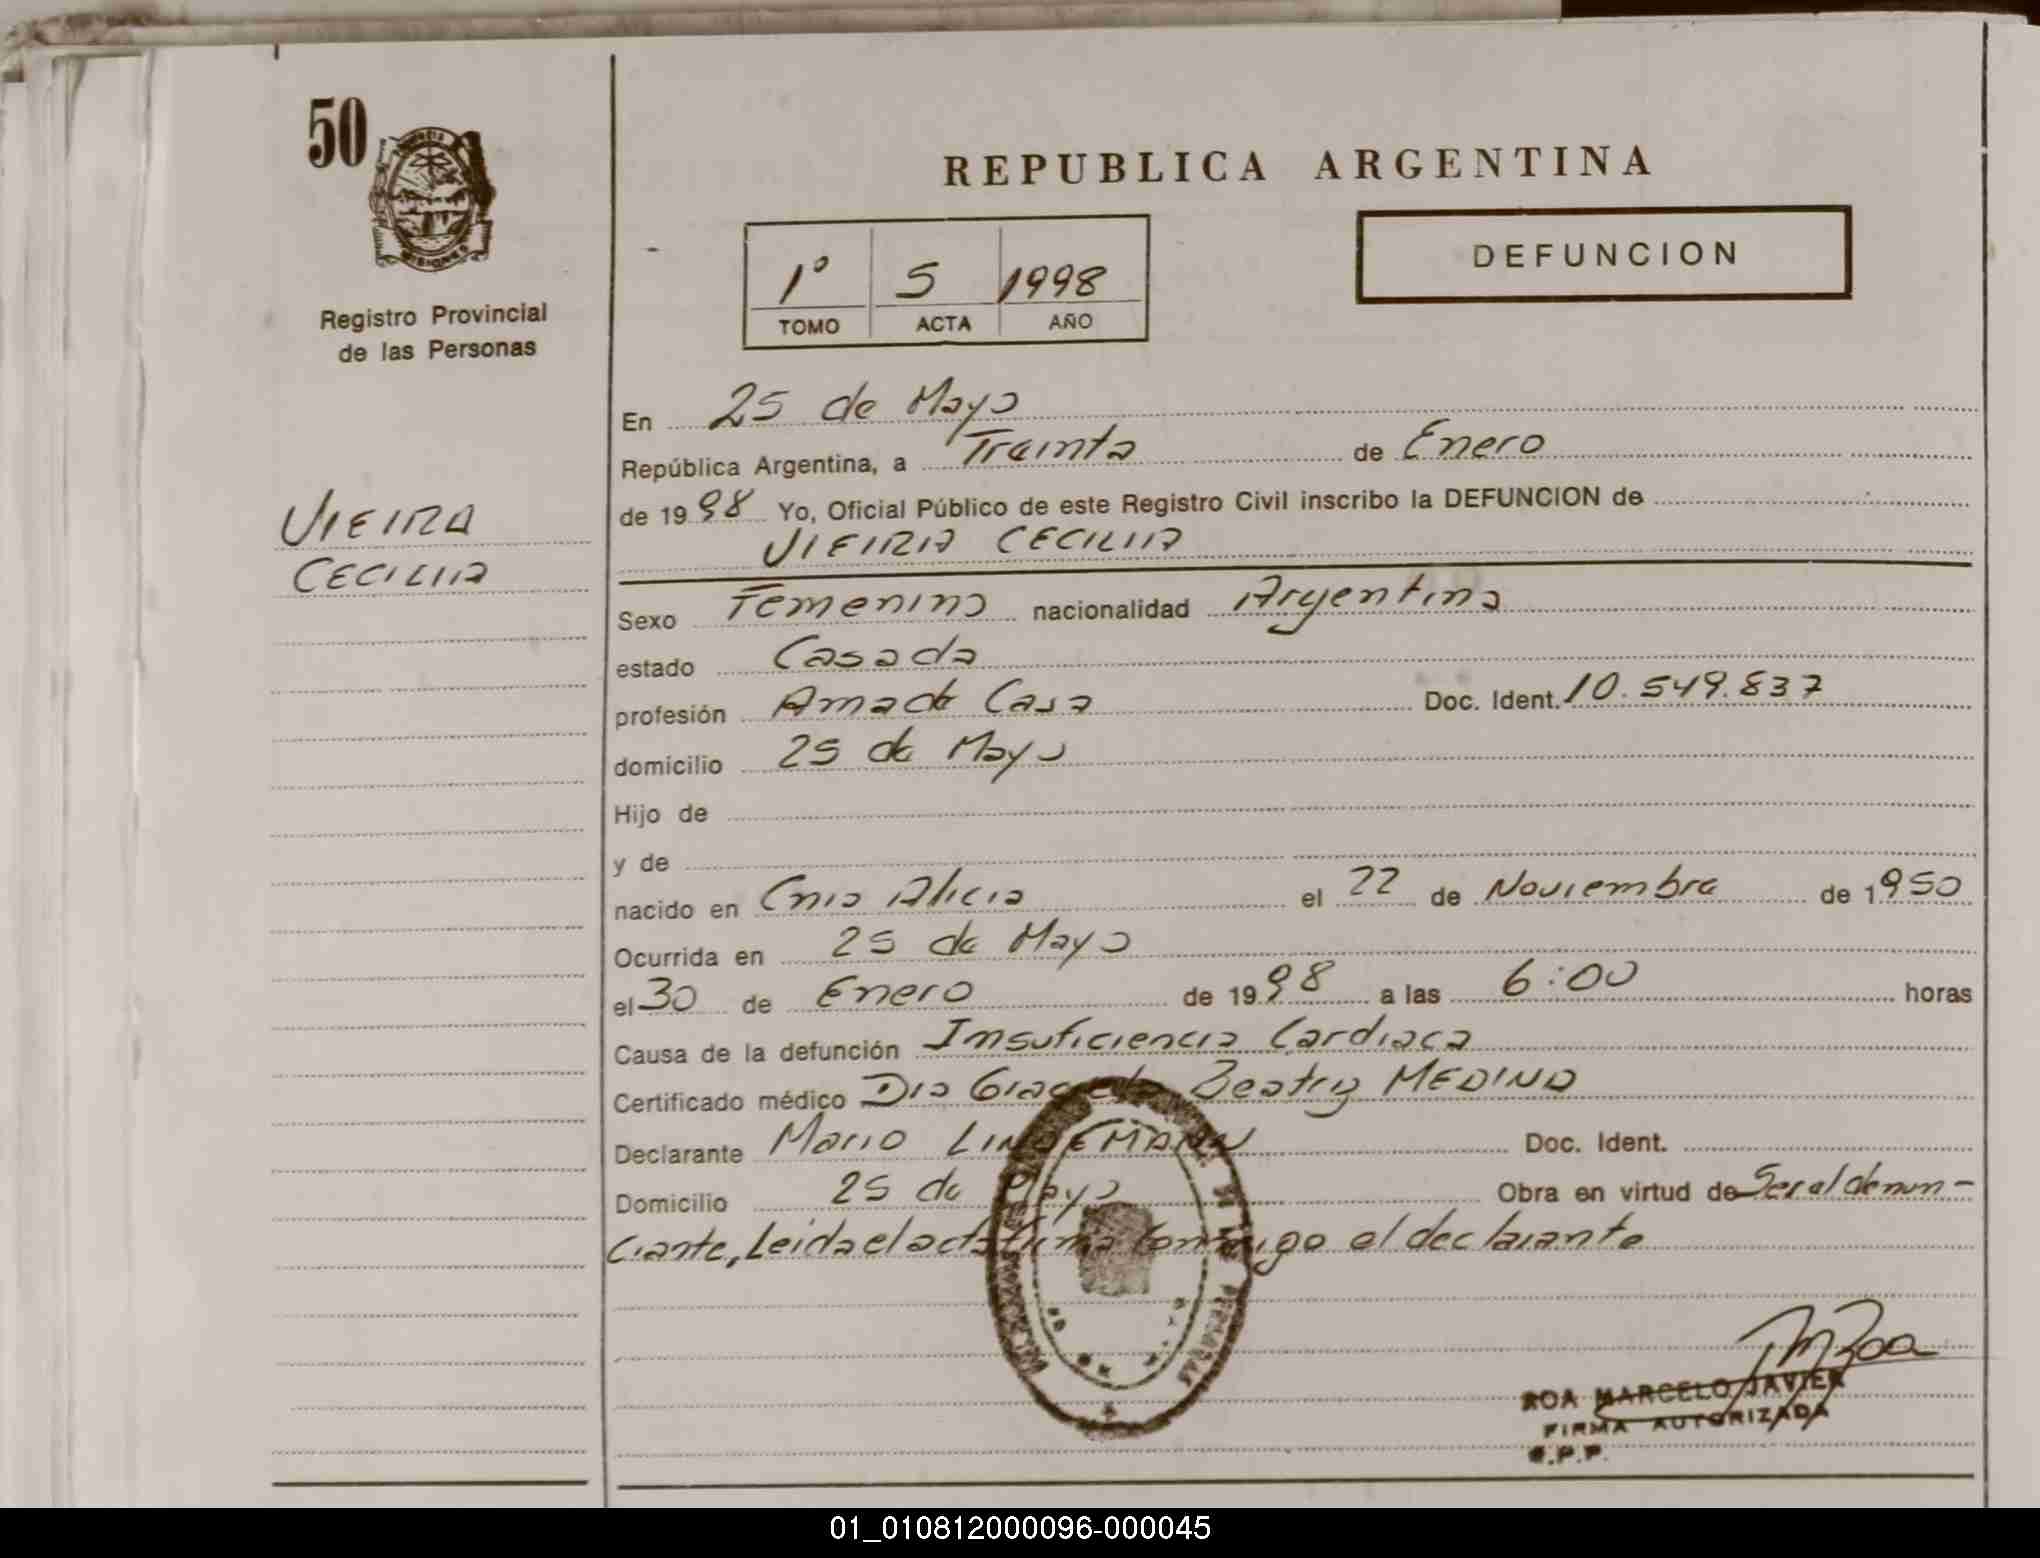 50
Registro Provincial
de las Personas
REPUBLICA ARGENTINA
1º 5 1998
TOMO ACTA AÑO
DEFUNCION
VIEIRA
CECILIA
En 25 de Mayo
República Argentina, a Treinta de Enero
de 1998 Yo, Oficial Público de este Registro Civil inscribo la DEFUNCION de
VIEIRA CECILIA
Sexo Femenino nacionalidad Argentina
estado Casada
profesión Ama de Casa Doc. Ident. 10.549.837
domicilio 25 de Mayo
Hijo de
y de
nacido en Cnia Alicia el 22 de Noviembre de 1950
Ocurrida en 25 de Mayo
el 30 de Enero de 1998 a las 6:00 horas
Causa de la defunción Insuficiencia Cardiaca
Certificado médico Dra Graciela Beatriz MEDINA
Declarante Mario LINDEMANN Doc. Ident.
Domicilio 25 de Mayo Obra en virtud de Ser el denun-
ciante, Leida el acta firma conmigo el declarante
ROA MARCELO JAVIER
FIRMA AUTORIZADA
R.P.P.
01_010812000096-000045